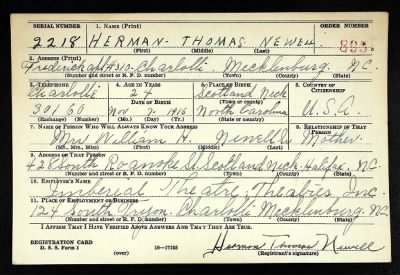 SERIAL NUMBER 1. NAME (Print) ORDER NUMBER
2218 HERMAN - THOMAS NEWELL 805
(First) (Middle) (Last)
2. ADDRESS (Print)
Frederick Apt #310 - Charlotte, Mecklenburg, N.C.
(Number and street or R. F. D. number) (Town) (County) (State)
3. TELEPHONE 4. AGE IN YEARS 5. PLACE OF BIRTH 6. COUNTRY OF CITIZENSHIP
Charlotte 24 Scotland Neck
DATE OF BIRTH (Town or county)
301 60 Nov 2, 1916 North Carolina U.S.A.
(Exchange) (Number) (Mo.) (Day) (Yr.) (State or country)
7. NAME OF PERSON WHO WILL ALWAYS KNOW YOUR ADDRESS 8. RELATIONSHIP OF THAT PERSON
Mrs William H. Newell Sr Mother
(Mr., Mrs., Miss) (First) (Middle) (Last)
9. ADDRESS OF THAT PERSON
428 South Roanoke St Scotland Neck - Halifax N.C.
(Number and street or R. F. D. number) (Town) (County) (State)
10. EMPLOYER'S NAME
Imperial Theatre Theatres, Inc.
11. PLACE OF EMPLOYMENT OR BUSINESS
124 South Tryon - Charlotte - Mecklenburg - N.C.
(Number and street or R. F. D. number) (Town) (County) (State)
I AFFIRM THAT I HAVE VERIFIED ABOVE ANSWERS AND THAT THEY ARE TRUE.
REGISTRATION CARD
D. S. S. Form 1 (over) 16-17105 Herman Thomas Newell
(Registrant's signature)